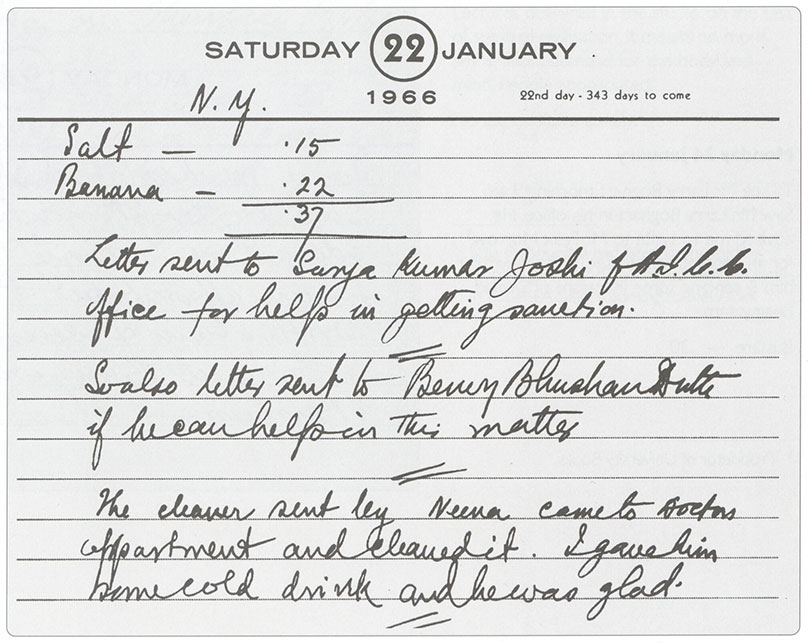 SATURDAY 22 JANUARY
1966 22nd day - 343 days to come
N. Y.
Salt — .15
Banana — .22
.37
Letter sent to Surya Kumar Joshi of A.I.C.C.
office for help in getting sanction.
So also letter sent to Benoy Bhushan Dutta
if he can help in this matter
The cleaner sent by Neena came to Doctors
appartment and cleaned it. I gave him
some cold drink and he was glad.